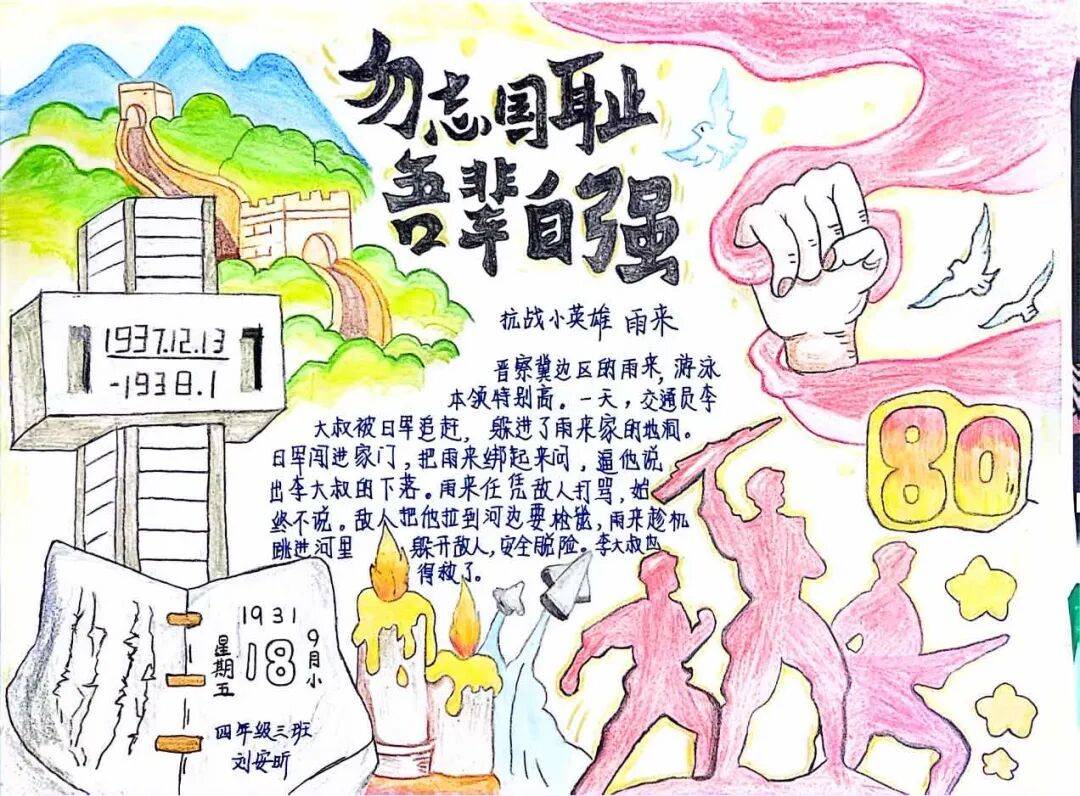 勿志国耻
吾辈自强
抗战小英雄 雨来
晋察冀边区的雨来,游泳
本领特别高。一天,交通员李
大叔被日军追赶,躲进了雨来家的地洞。
日军闯进家门,把雨来绑起来问,逼他说
出李大叔的下落。雨来任凭敌人打骂,始
终不说。敌人把他拉到河边要枪毙,雨来趁机
跳进河里 躲开敌人,安全脱险。李大叔也
得救了。
1937.12.13
-1938.1
80
1931
9月小
18
星期五
四年级三班
刘安昕